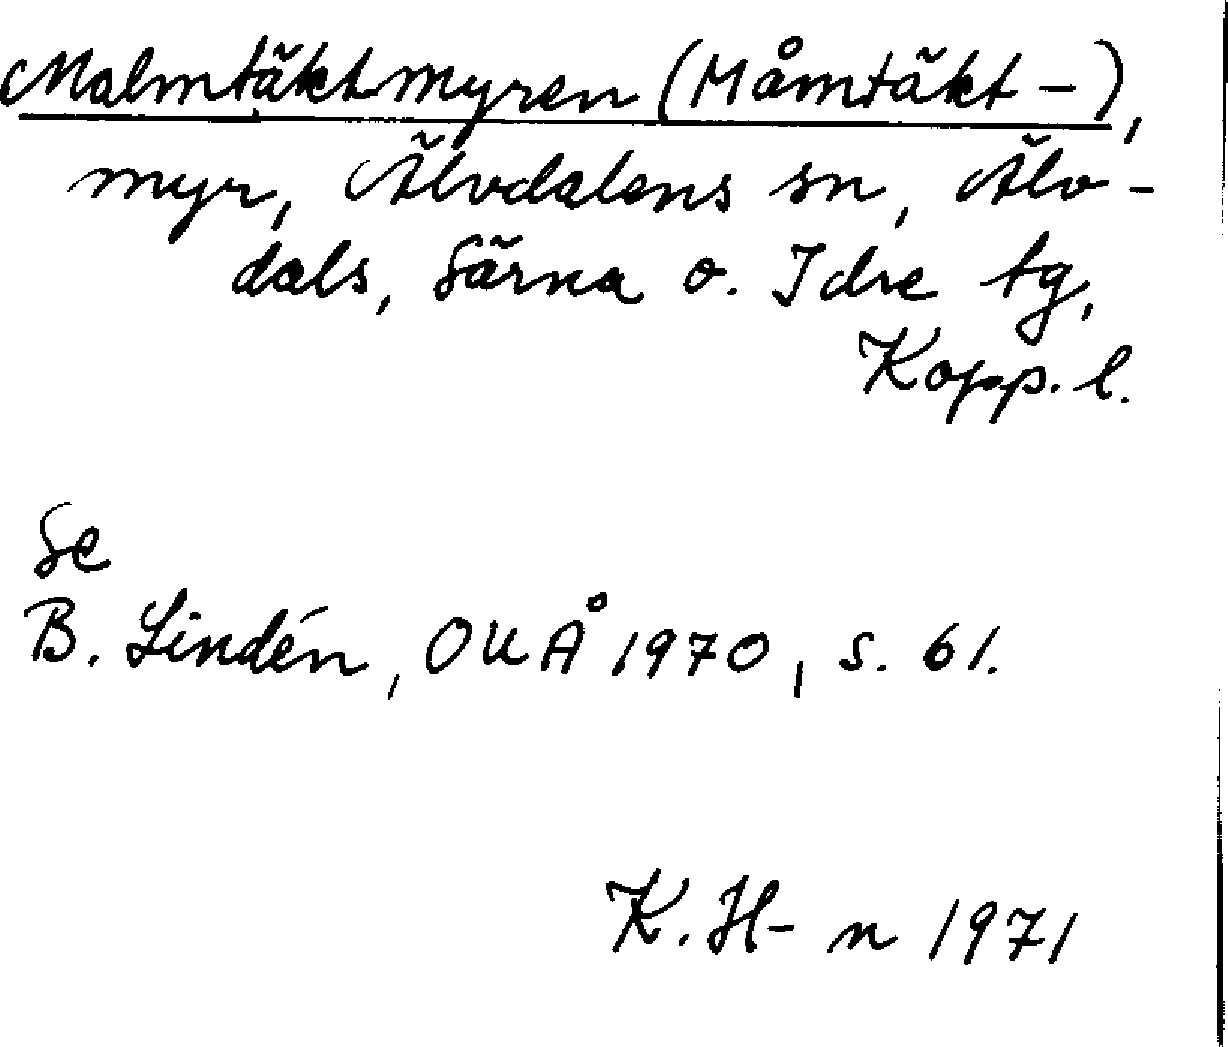 Malmtäktmyren (Måmtäkt-),
myr, Älvdalens sn, Älv-
dals, Särna o. Idre tg,
Kopp. l.
Se
B. Lindén, OUÅ 1970, s. 61.
K. H-n 1971